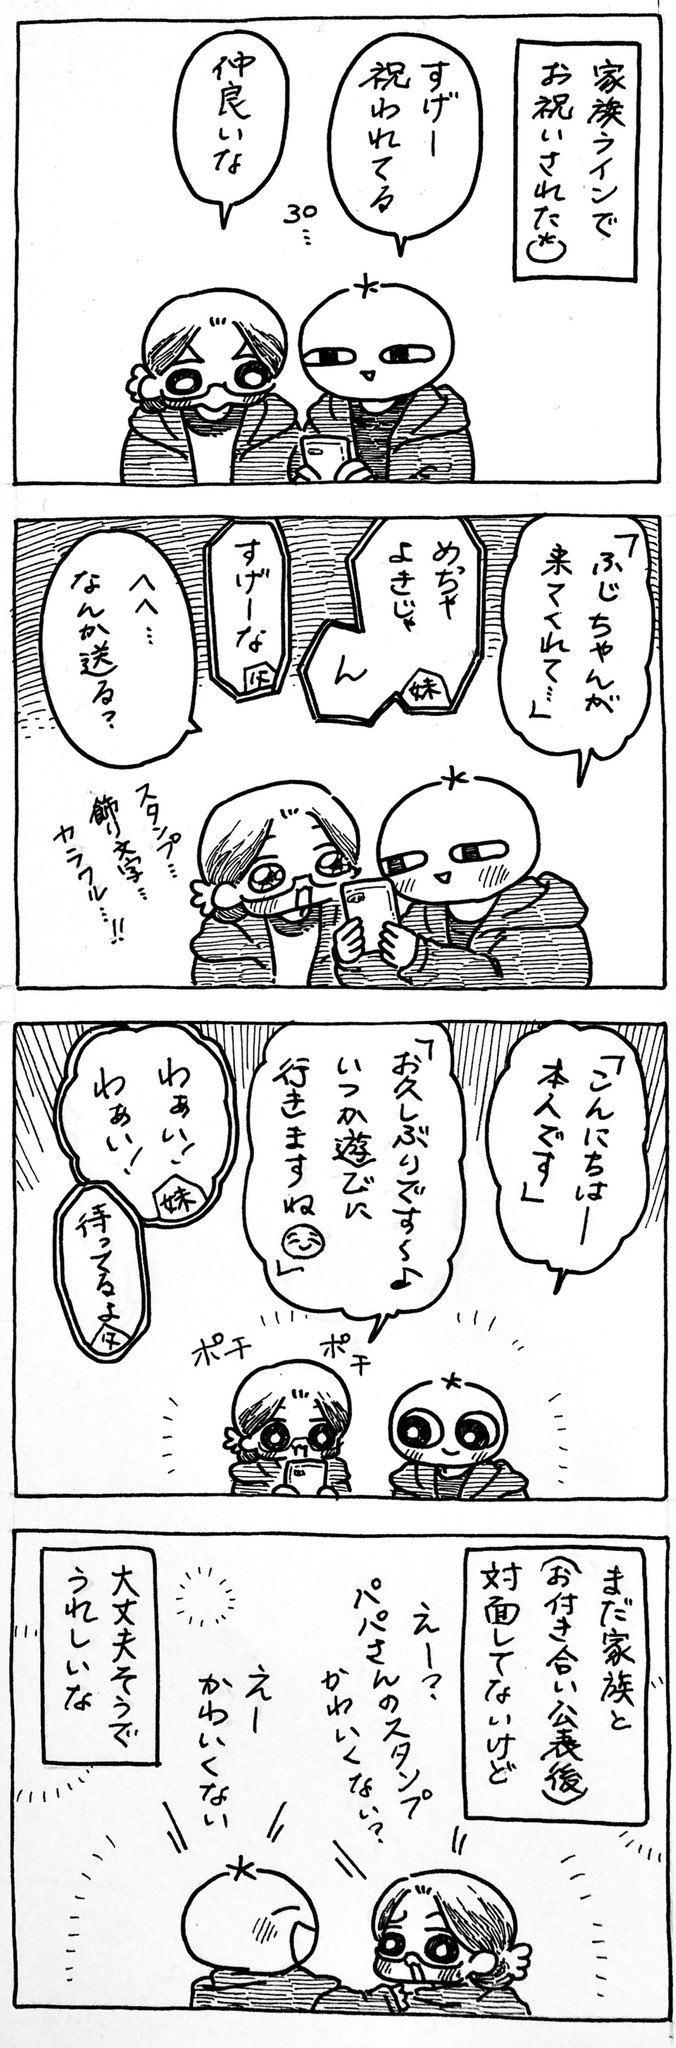 家族ラインで
お祝いされた
すげー
祝われてる
30…
仲良いな
「ふじちゃんが
来てくれて…」
めっちゃ
よきじゃ
ん
妹
すげーな
へへ…
なんか送る?
スタンプ…
飾り文字…
カラフル…!!
「こんにちはー
本人です」
「お久しぶりです〜♪
いつか遊びに
行きますね😊」
わぁい!
わぁい!
妹
待ってるよ
ポチ
ポチ
まだ家族と
(お付き合い公表後)
対面してないけど
えー?
パパさんのスタンプ
かわいくない?
えー
かわいくない
大丈夫そうで
うれしいな